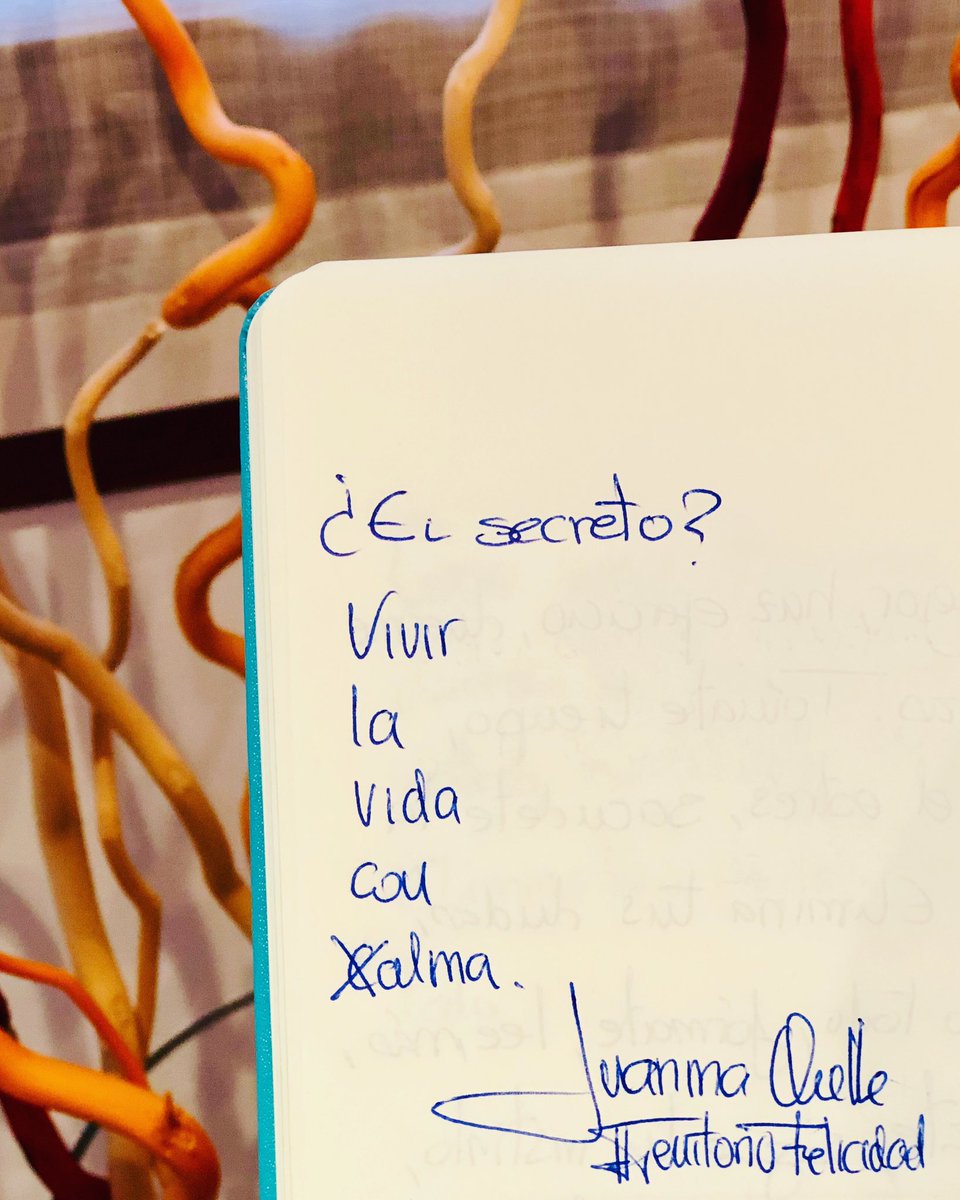 ¿El secreto?
Vivir
la
vida
con
alma.
Juanma Quelle
#TerritorioFelicidad